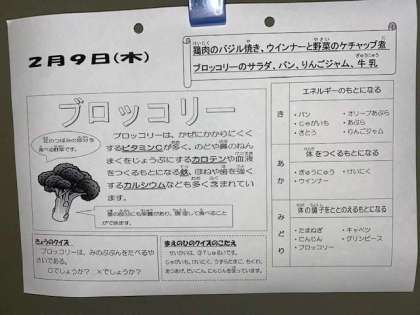 ２月９日(木)
鶏肉のバジル焼き、ウインナーと野菜のケチャップ煮
ブロッコリーのサラダ、パン、りんごジャム、牛乳
ブロッコリー
花のつぼみの部分を
食べる野菜です。
ブロッコリーは、かぜにかかりにくく
するビタミンCが多く、のどや鼻のねん
まくをじょうぶにするカロテンや血液
をつくるもとになる鉄、ほねや歯を強く
するカルシウムなども多く含まれてい
ます。
茎の部分にも栄養があり、調理して食べること
ができます。
きょうのクイズ
ブロッコリーは、みのぶぶんをたべるや
さいである。
○でしょうか？ ×でしょうか？
まえのひのクイズのこたえ
せいかいは、③７しゅるいです。
じゃがいも、けいにく、うずらたまご、ちくわ、
あつあげ、だいこん、にんじんを使っています。
エネルギーのもとになる
き
・パン ・オリーブあぶら
・じゃがいも ・あぶら
・さとう ・りんごジャム
体をつくるもとになる
あか
・ぎゅうにゅう ・けいにく
・ウインナー
体の調子をととのえるもとになる
みどり
・たまねぎ ・キャベツ
・にんじん ・グリンピース
・ブロッコリー